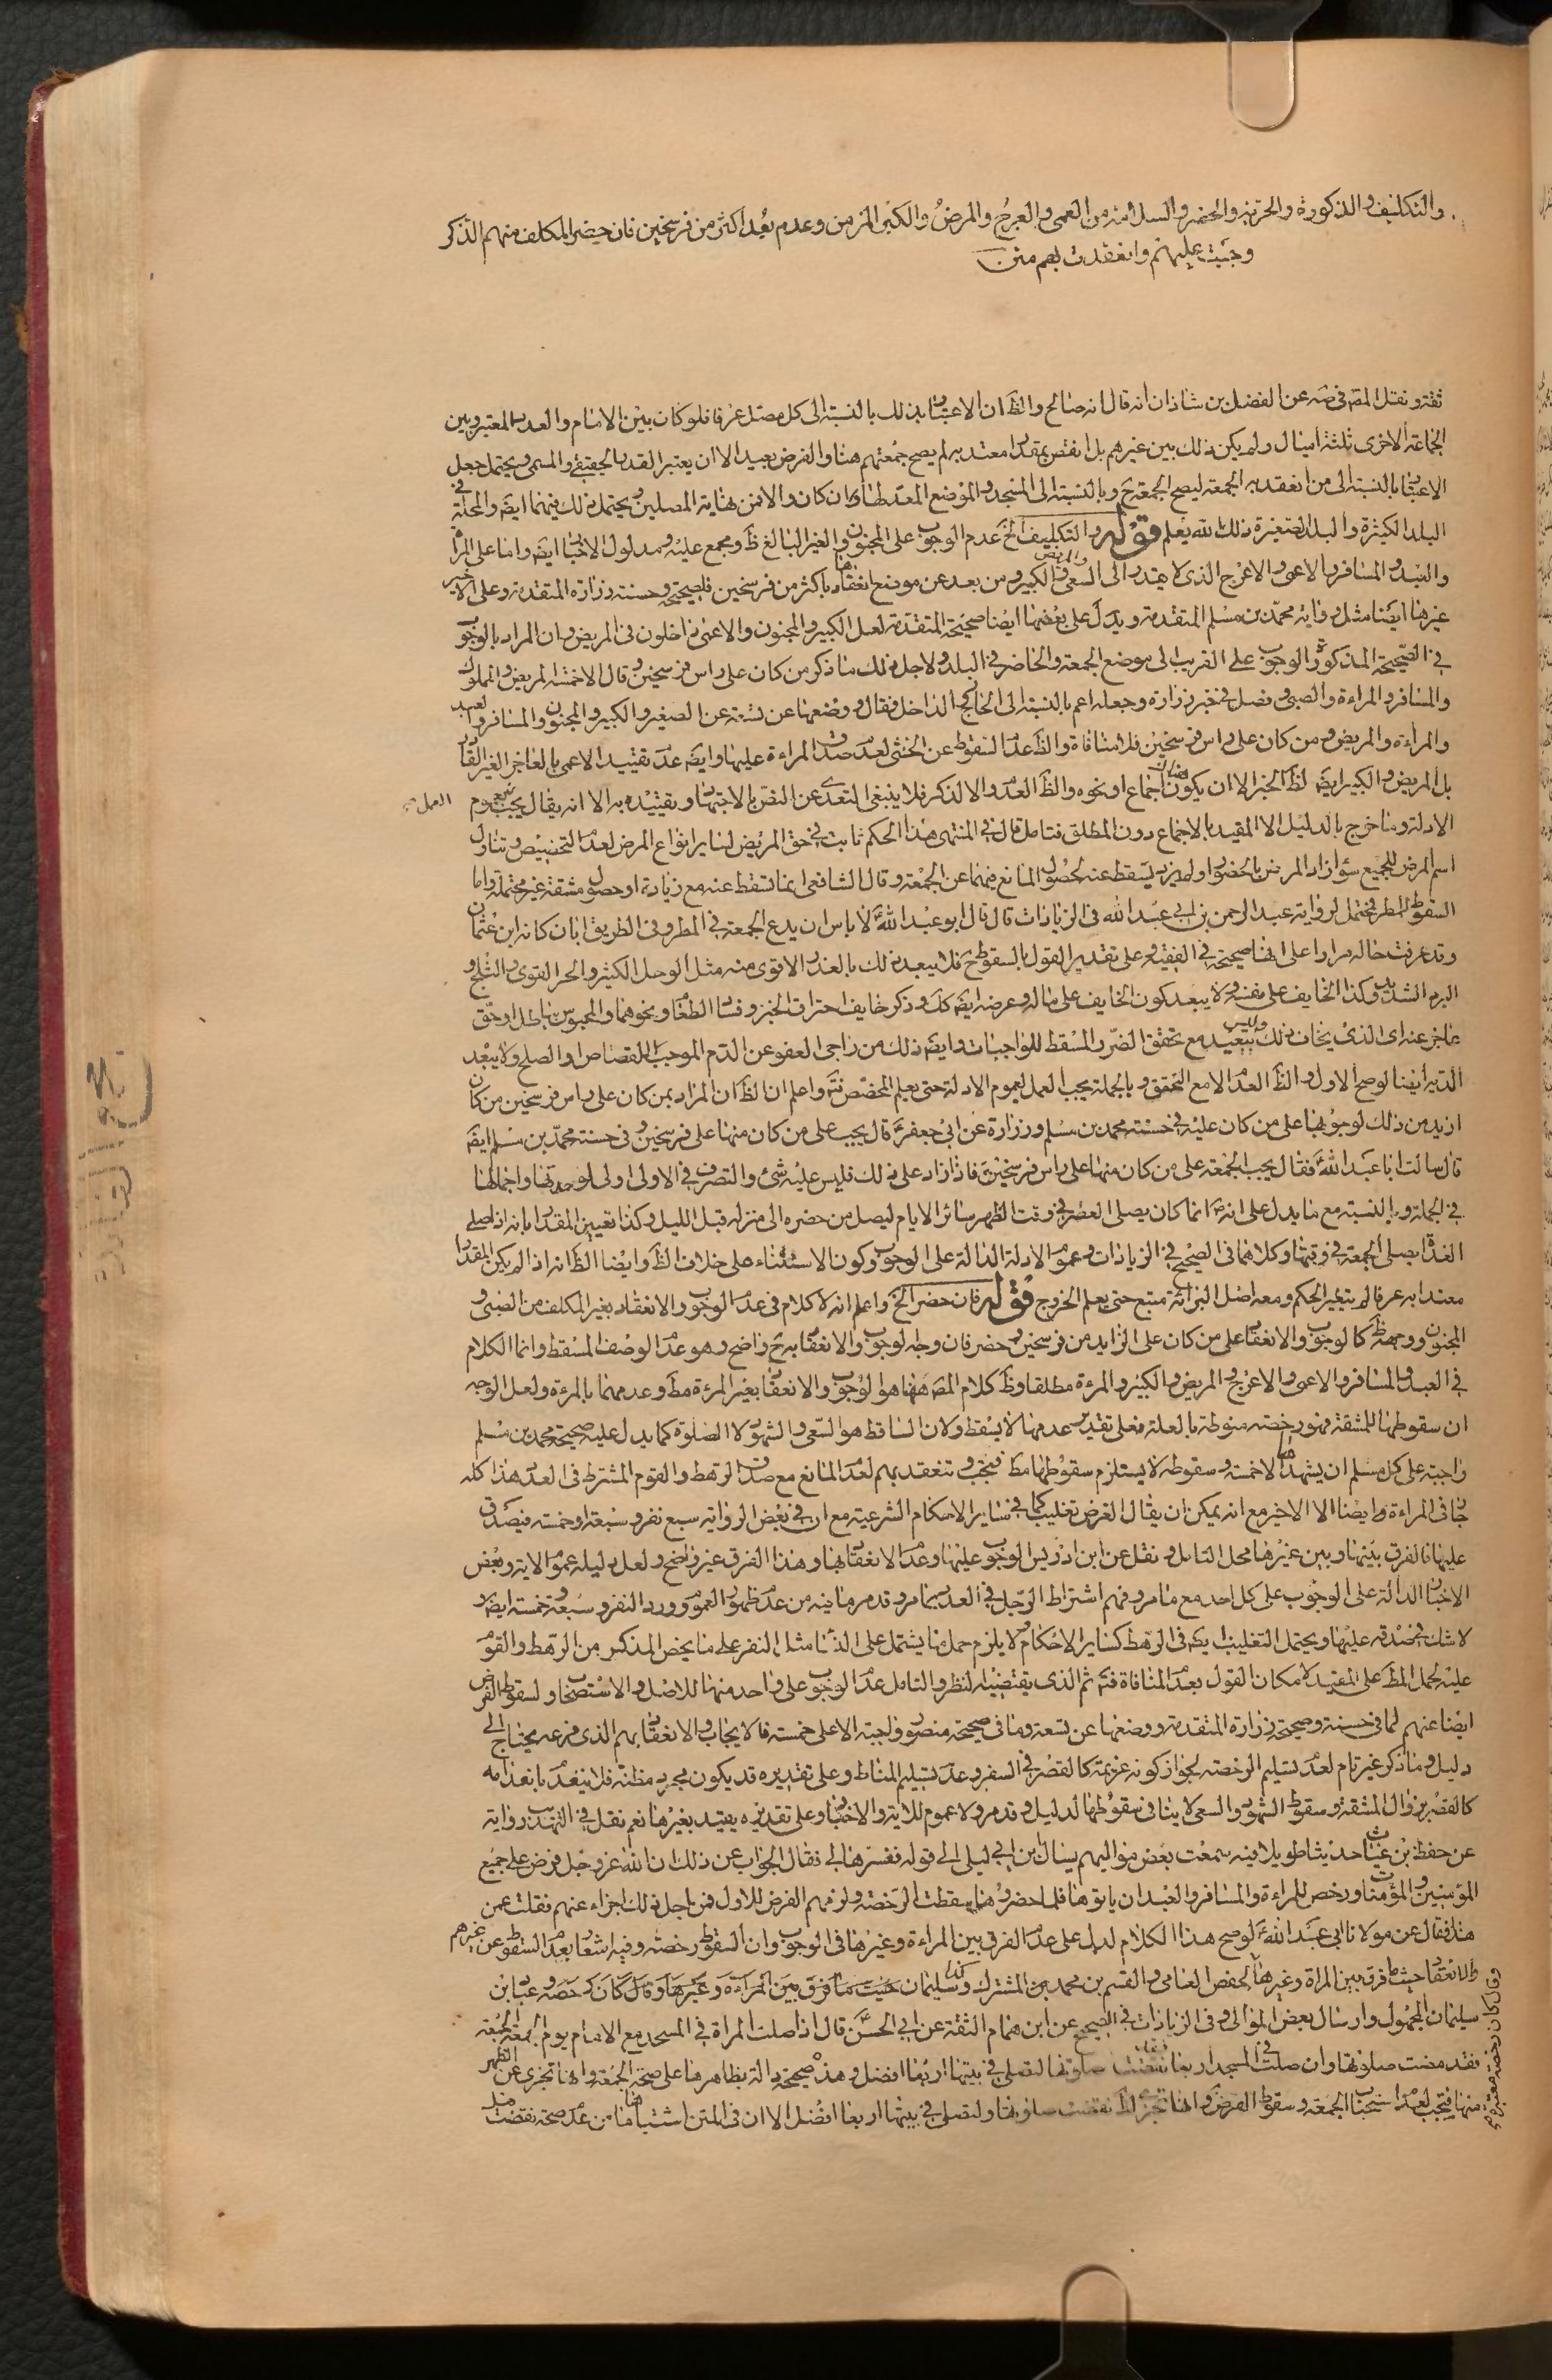 والتكليف والذكورة والحرية والحضر والسلامة من العمى والعرج والمرض والكبر المزمن وعدم بعد اكثر من فرسخين فان حضر المكلف منهم الذكر
وجبت عليهم وانعقدت بهم متن
ثقة ونقل المصه في صه عن الفضل بن شاذان انه قال انه صالح والظ ان الاعتبار بذلك بالنسبة الى كل مصل عرفا فلو كان بين الامام والعدد المعتبر وبين
الجماعة الاخرى ثلثة اميال ولم يكن ذلك بين غيرهم بل انقص بمقدار معتد به لم يصح جمعتهم هنا والفرض بعيد الا ان يعتبر القدر الحقيقي والمسمى ويحتمل جعل
الاعتبار بالنسبة الى من انعقد به الجمعة ليصح الجمعة ح وبالنسبة الى المسجد والموضع المعد لها ان كان والا فمن نهاية المصلين ويحتمل ذلك فيهما ايضه والمحلة في
البلد الكبيرة والبلد الصغيرة ذلك الله يعلم قوله والتكليف الخ عدم الوجوب على المجنون والغير البالغ ظ ومجمع عليه ومدلول الاخبار ايضه واما على المراة
والعبد والمسافر والاعمى والاعرج الذى لا يقتدر الى السعى والمريض والكبير ومن بعد عن موضع انعقادها باكثر من فرسخين فلصحيحة وحسنة زرارة المتقدمة وعلى الاخير
غيرها ايضا مثل رواية محمد بن مسلم المتقدمة ويدل على بعضها ايضا صحيحة المتقدمة لعل الكبير والمجنون والاعمى داخلون فى المريض وان المراد بالوجوب
في الصحيحة المذكورة الوجوب على القريب الى موضع الجمعة والحاضر في البلد ولاجل ذلك ما ذكر من كان على راس فرسخين وقال الا خمسة المريض والمملوك
والمسافر والمراءة والصبى وفصل في خبر زرارة وجعله اعم بالنسبة الى الخارج الداخل فقال ووضعها عن تسعة عن الصغير والكبير والمجنون والمسافر والعبد
والمراءة والمريض ومن كان على راس فرسخين فلا منافاة والظ عدم السقوط عن الخنثى لعدم صدق المراءة عليها وايضه عدم تقييد الاعمى بالعاجز الغير القادر
بل المريض والكبير ايضه لظ الخبر الا ان يكون اجماع او نحوه والظ العدم والا لذكر فلا ينبغى التعدى عن النص بالاجتهاد وتقييده به الا انه يقال يجب بعموم العمل
الادلة وما خرج بالدليل الا المقيد بالاجماع دون المطلق فتامل قال في المنتهى هذا الحكم ثابت في حق المريض لساير انواع المرض لعدم التخصيص وتناول
اسم المرض للجميع سؤ ازاد المرض بالحضور او لم يزد يسقط عنه لحصول المانع فيهما عن الجمعة وقال الشافعى انما تسقط عنه مع زيادة او حصول مشقة غير محتملة واما
السقوط للمطر فمحتمل لرواية عبد الرحمن بن ابى عبد الله فى الزيادات قال قال ابو عبد الله لا باس ان يدع الجمعة في المطر وفى الطريق ابان كانه ابن عثمان
وقد عرفت حاله مرارا على انها صحيحة في الفقيه وعلى تقدير القول بالسقوط ح فلا يبعد ذلك بالعذر الاقوى منه مثل الوحل الكثير والحر القوى والثلج و
البرد الشديد وكذا الخايف على نفسه ولا يبعد كون الخايف على ماله وعرضه ايضه كك وذكر خايف احتراق الخبز وفساد الطعام ونحوهما والمحبوس بباطل او حق
عاجز عنه اى الذى يخاف ذلك وليس ببعيد مع تحقق الضرر المسقط للواجبات وايضه ذلك من راجى العفو عن الدم الموجب للقصاص او الصلح ولا يبعد
الدية ايضا لو صح الاول والظ العدم الا مع التحقق وبالجملة يجب العمل بعموم الادلة حتى يعلم المخصص فتر واعلم ان الظ ان المراد بمن كان على راس فرسخين من كان
ازيد من ذلك لوجوبها على من كان عليه في حسنة محمد بن مسلم وزرارة عن ابى جعفر قال يجب على من كان منها على فرسخين وفى حسنة محمد بن مسلم ايضه
قال سالت ابا عبد الله فقال يجب الجمعة على من كان منها على راس فرسخين فاذا زاد على ذلك فليس عليه شئ والتصرف في الاولى اولى لوحدتها واجمالها
في الجملة وبالنسبة مع ما يدل على انه انما كان يصلى العصر في وقت الظهر سائر الايام ليصل من حضره الى منزله قبل الليل وكذا تعيين المقدار بانه اذا صلى
الغداة يصلى الجمعة في وقتها وكلاهما فى الصحيح في الزيادات وعموم الادلة الدالة على الوجوب وكون الاستثناء على خلاف الظ وايضا الظ انه اذا لم يكن المقدار
معتدا به عرفا لم يتغير الحكم ومعه اصل البرائة متبع حتى يعلم الخروج قوله فان حضر الخ واعلم انه لا كلام فى عدم الوجوب والانعقاد بغير المكلف من الصبى و
المجنون ووجهه ظ كالوجوب والانعقاد على من كان على الزايد من فرسخين وحضر فان وجه لوجوب والانعقاد به ح واضح وهو عدم الوصف المسقط وانما الكلام
في العبد والمسافر والاعمى والاعرج والمريض والكبير والمرءة مطلقا وظ كلام المصه ههنا هو الوجوب والانعقاد بغير المرءة مط وعدمهما بالمرءة ولعل الوجه
ان سقوطها للمشقة فهو رخصة منوطة بالعلة فعلى تقدير عدمها لا يسقط ولان الساقط هو السعى والشهود لا الصلوة كما يدل عليه صحيحة محمد بن مسلم
واجبة على كل مسلم ان يشهدها الا خمسة وسقوطه لا يستلزم سقوطها مط فيجب وتنعقد بهم لعدم المانع مع صدق الرهط والقوم المشترط فى العدد هذا كله
جار فى المراءة وايضا الا الاخير مع انه يمكن ان يقال الغرض تغليب كما في ساير الاحكام الشرعية مع ان في بعض الرواية سبع نفر وسبعة او خمسة فيصدق
عليها فالفرق بينها وبين غيرها محل التامل ونقل عن ابن ادريس الوجوب عليها وعدم الانعقاد بها وهذا الفرق غير واضح ولعل دليله عموم الاية وبعض
الاخبار الدالة على الوجوب على كل احد مع ما مر وفهم اشتراط الرجل في العدد بما مر وقد مر ما فيه من عدم ظهور العموم وورود النفر وسبعة وخمسة ايضه و
لا شك في صدقه عليها ويحتمل التغليب ايضه فى الرهط كساير الاحكام ولا يلزم حمل ما يشتمل على الذنا مثل النفر على ما يخص المذكر من الرهط والقوم
عليه لحمل المط على المقيد لامكان القول بعدم المنافاة فتم ثم الذى يقتضيه النظر والتامل عدم الوجوب على واحد منها للاصل والاستصحاب ولسقوط الفرض
ايضا عنهم لما فى حسنة وصحيحة زرارة المتقدمة ووضعها عن تسعة وما فى صحيحة منصور واجبة الا على خمسة فالايجاب والانعقاد بهم الذى فرعه يحتاج الى
دليل وما ذكر غير تام لعدم تسليم الرخصة لجواز كونه عزيمة كالقصر في السفر وعدم تسليم المناط وعلى تقديره قد يكون مجرد مظنة فلا ينعدم بانعدامه
كالقصر بزوال المشقة وسقوط الشهود والسعى لا ينافى سقوطها لدليل وقد مر ولا عموم للاية والاخبار وعلى تقديره يقيد بغيرها نعم نقل في التهذيب رواية
عن حفظ بن غياث حديثا طويلا فيه سمعت بعض مواليهم يسال ابن ابى ليلى الى قوله ففسرها لى فقال الجواب عن ذلك ان الله عز وجل فرض على جميع
المؤمنين والمؤمنات ورخص للمراءة والمسافر والعبد ان ياتوها فلما حضروها سقطت الرخصة ولزمهم الفرض للاول فمن اجل ذلك اجزاء عنهم فقلت عمن
هذا فقال عن مولانا ابى عبد الله لو صح هذا الكلام لدل على عدم الفرق بين المراءة وغيرها فى الوجوب وان السقوط رخصة وفيه اشعار بعدم السقوط عن غيرهم
والانعقاد حيث ما فرق بين المراة وغيرها لحفص العامى والقسم بن محمد المشترك وكذا سليمان حيث ما فرق بين المراءة وغيرها وقال كان رخصة وعباد بن
سليمان المجهول وارسال بعض الموالى وفى الزيادات في الصحيح عن ابن همام الثقة عن ابى الحسن قال اذا صلت المراة في المسجد مع الامام يوم الجمعة الجمعة
فقد مضت صلوتها وان صلت في المسجد اربعا نقصت صلوتها لتصلى في بيتها اربعا افضل وهذه صحيحة دالة بظاهرها على صحة الجمعة وانها تجزى عن الظهر
منها فيجب لعدم استحباب الجمعة وسقوط الفرض نقصت صلوتها ولتصلى في بيتها اربعا افضل الا ان فى المتن اشتباها ما من عدم صحة نقصت
وقال كان رخصة